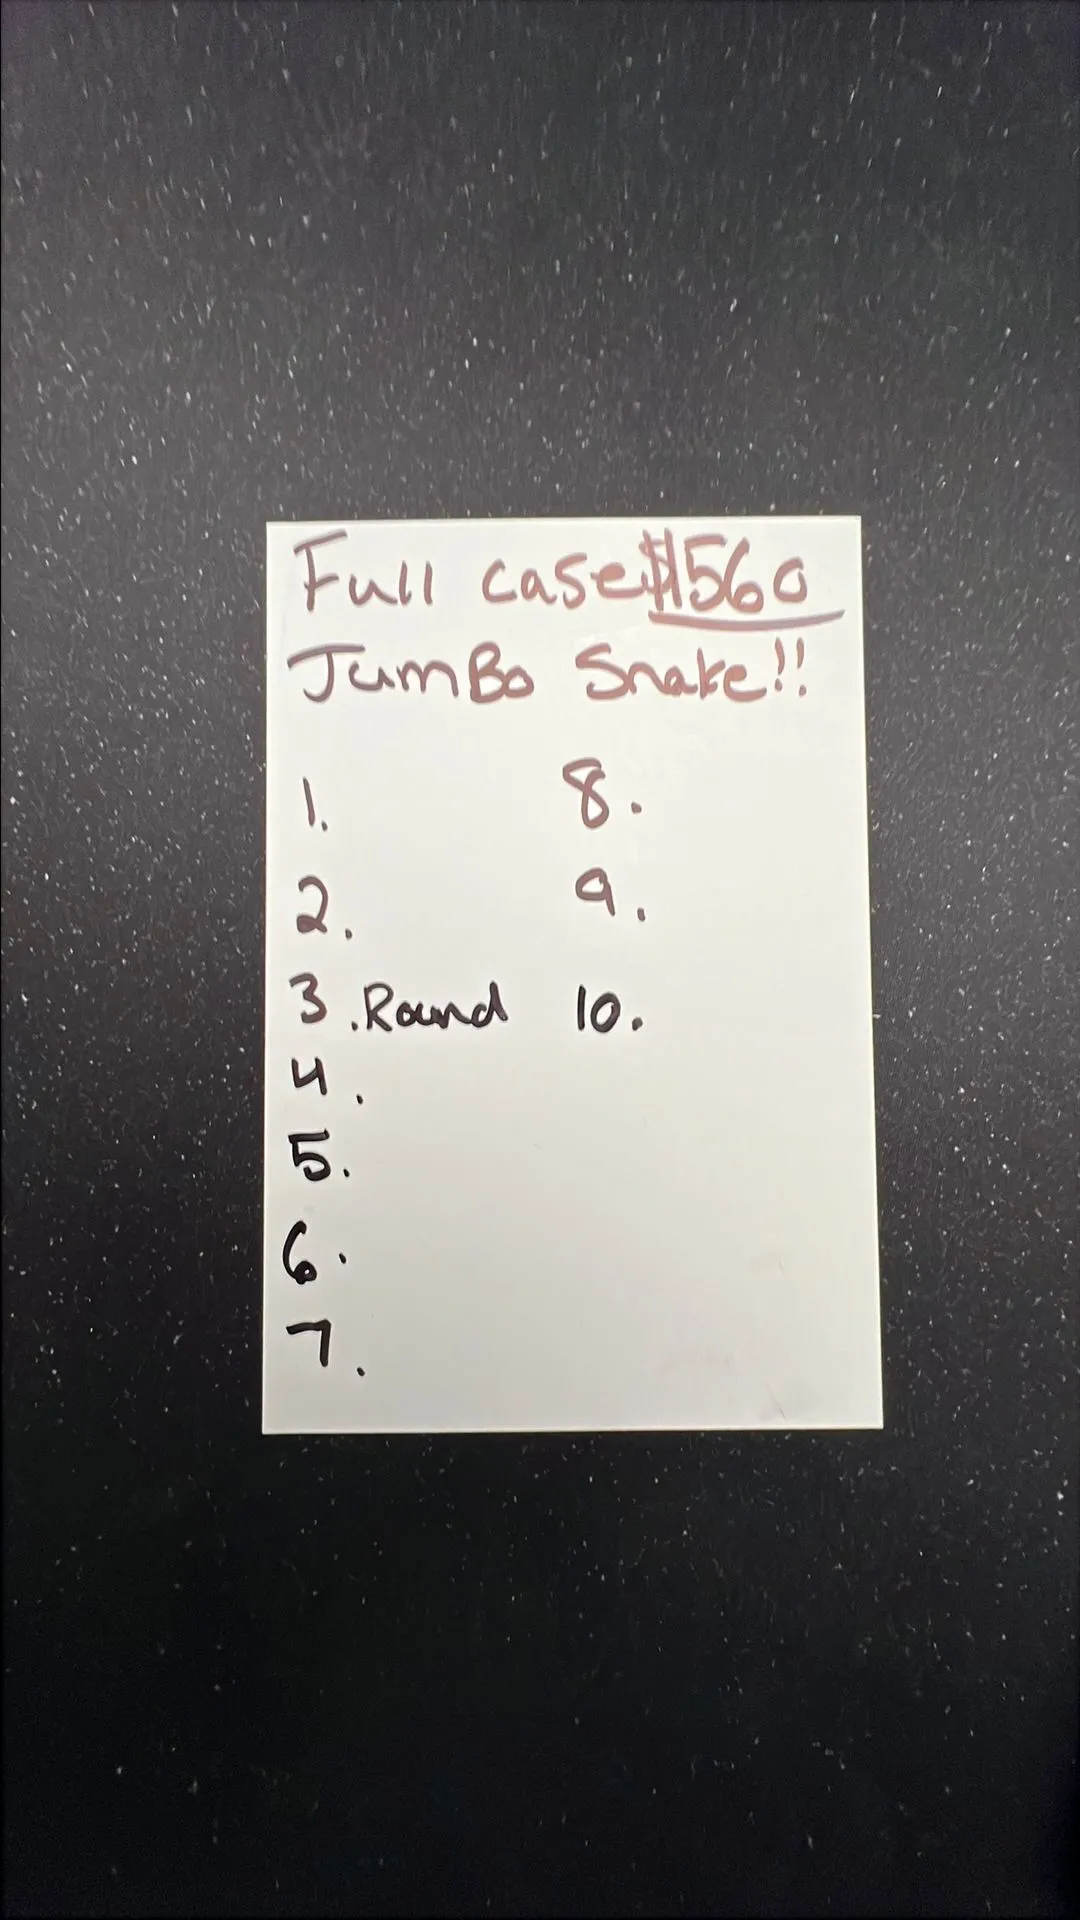 Full case $560
JumBo Snake!!
1.
2.
3. Round
4.
5.
6.
7.
8.
9.
10.